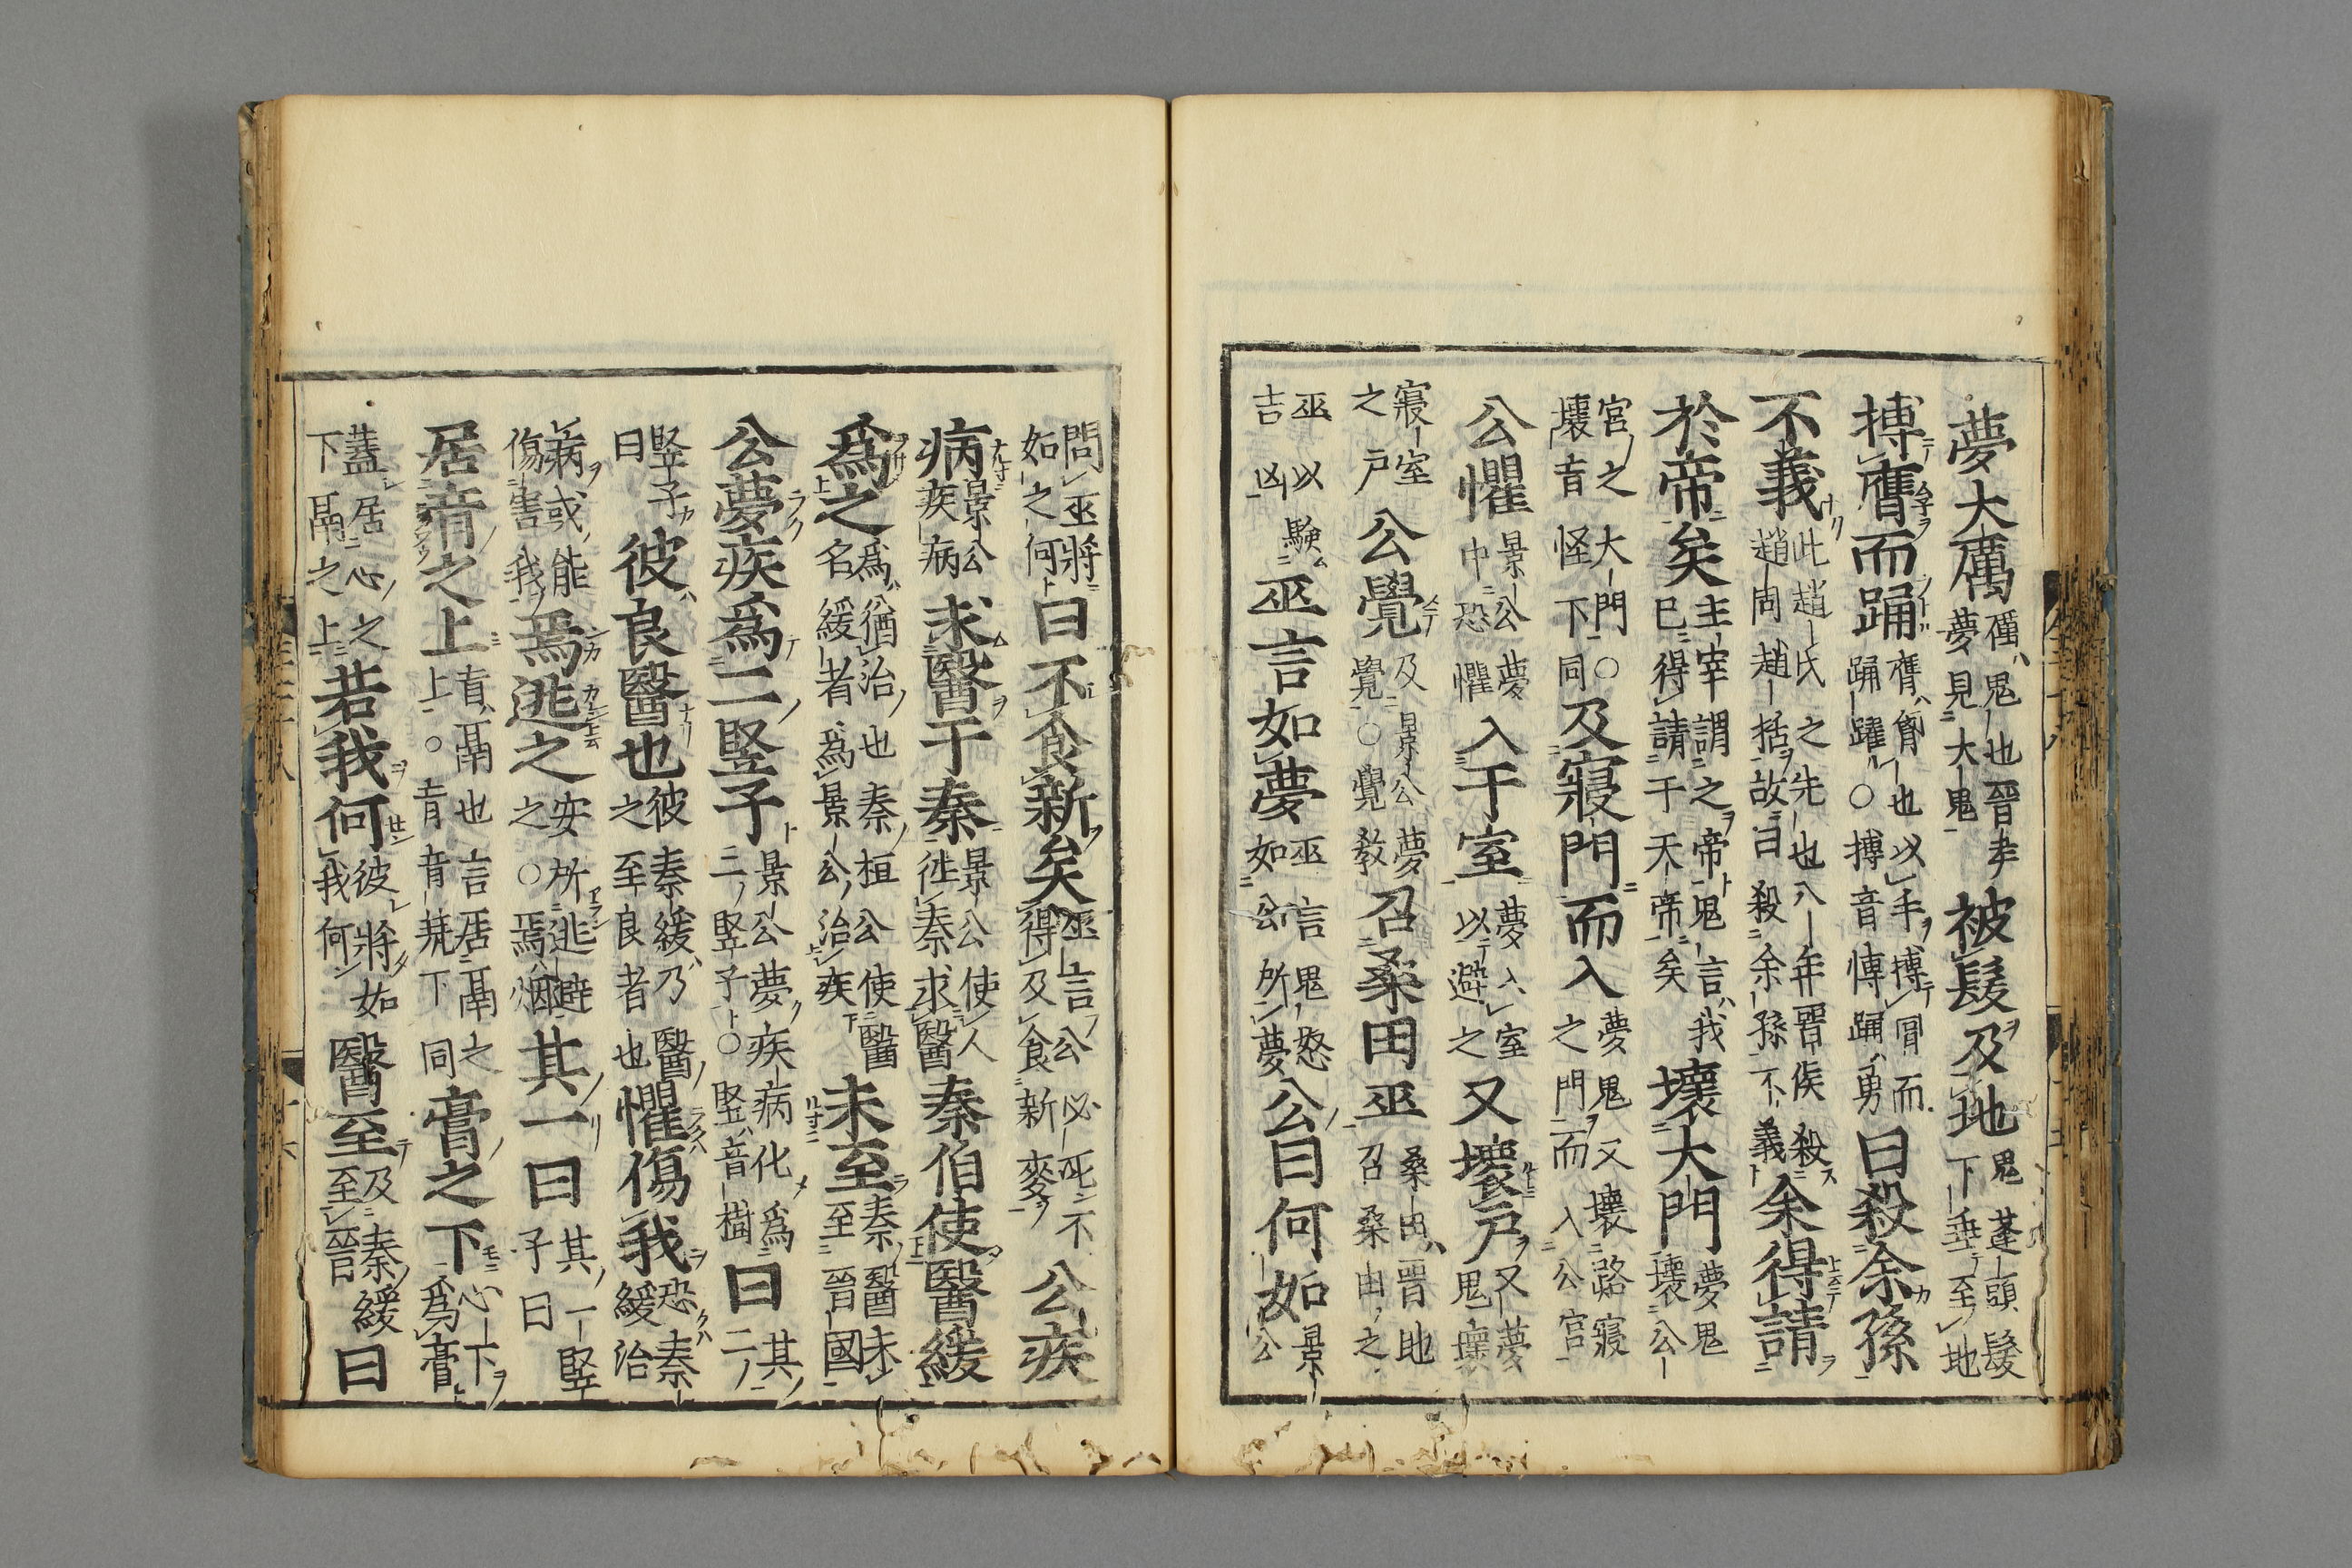 夢大厲厲鬼也晉矦夢見大鬼被髮及地鬼蓬頭髮下垂至地
搏膺而踊膺胷也以手搏胷而踊躍○搏音愽踊勇曰殺余孫
不義此趙氏之先也八年晋侯殺趙同趙括故曰殺余孫不義余得請
於帝矣主宰謂之帝鬼言我已得請于天帝矣壞大門夢鬼壞公
宮之大門○壞音怪下同及寢門而入夢鬼又壞路寢之門而入公宮
公懼景公夢中恐懼入于室夢入室以避之又壞戶又夢鬼壞
寢室之戶公覺及景公夢覺○覺教召桑田巫桑田晋地召桑田之
巫以驗吉凶巫言如夢巫言鬼怒如公所夢公曰何如景公
問巫將如之何曰不食新矣巫言公必死不得及食新麥公疾
病景公疾病求醫于秦景公使人徃秦求醫秦伯使醫緩
爲之爲猶治也秦桓公使醫名緩者爲景公治疾未至秦醫未至晉國
公夢疾爲二竪子景公夢疾病化爲二竪子○竪音樹曰其二
竪子曰彼良醫也彼秦緩乃醫之至良者也懼傷我恐秦緩治
病或能傷害我焉逃之安所逃避之○焉烟其一曰其一竪子曰
居肓之上肓鬲也言居鬲之上○肓音荒下同膏之下心下爲膏
蓋居心之下鬲之上若我何彼將如我何醫至及秦緩至晉曰